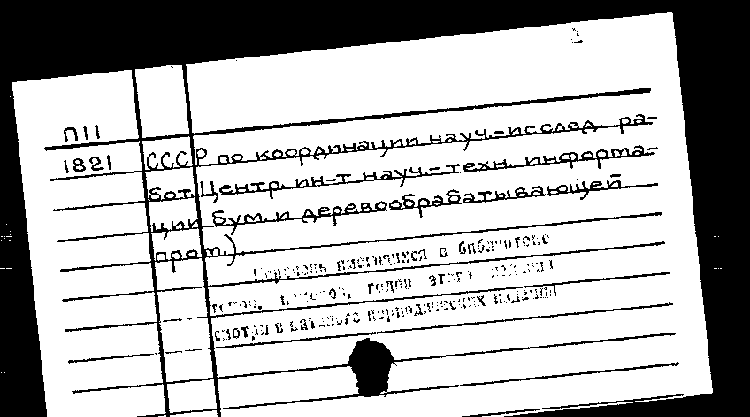 П11
1821 СССР по координации науч.-исслед. ра-
бот. Центр. ин-т науч.-техн. информа-
ции бум. и деревообрабатывающей
пром.).
Перечень имеющихся в библиотеке
томов, номеров, годов этого издания
смотри в каталоге периодических изданий